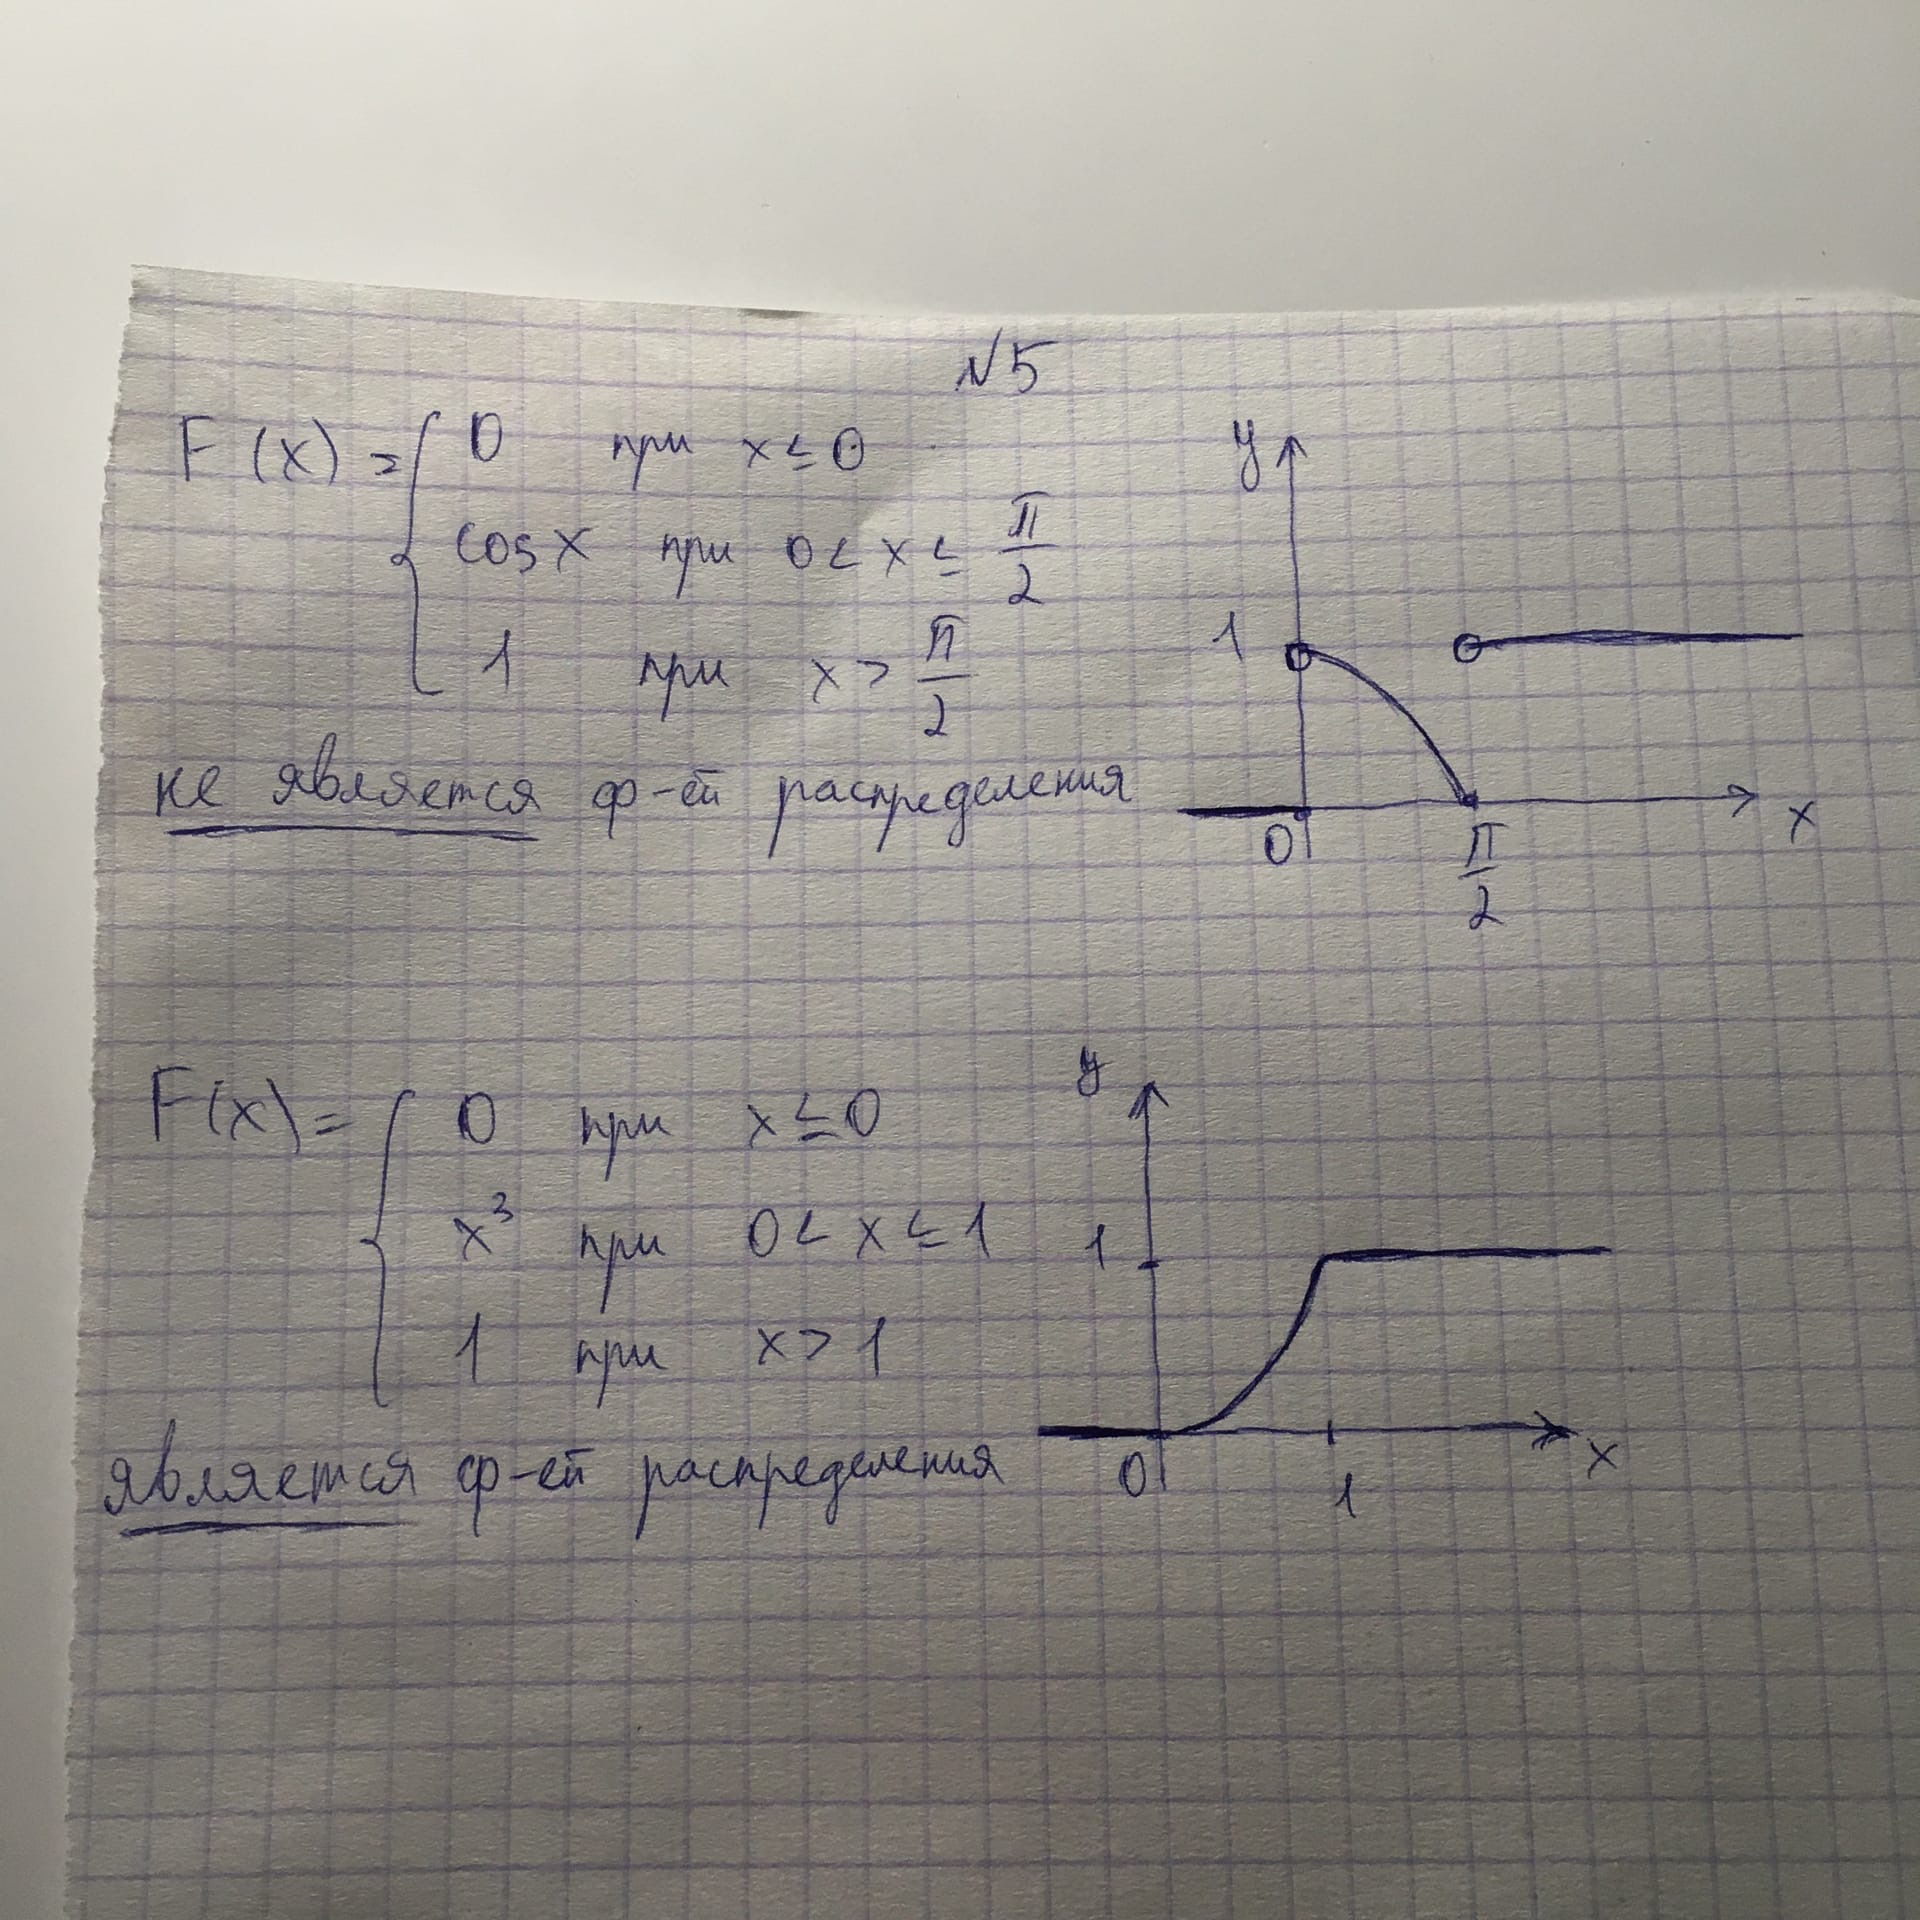 №5
F(x) = { 0 при x ≤ 0
cos x при 0 < x ≤ π/2
1 при x > π/2
не является ф-ей распределения
y
1
0
π/2
x
F(x) = { 0 при x ≤ 0
x³ при 0 < x ≤ 1
1 при x > 1
является ф-ей распределения
y
1
0
1
x